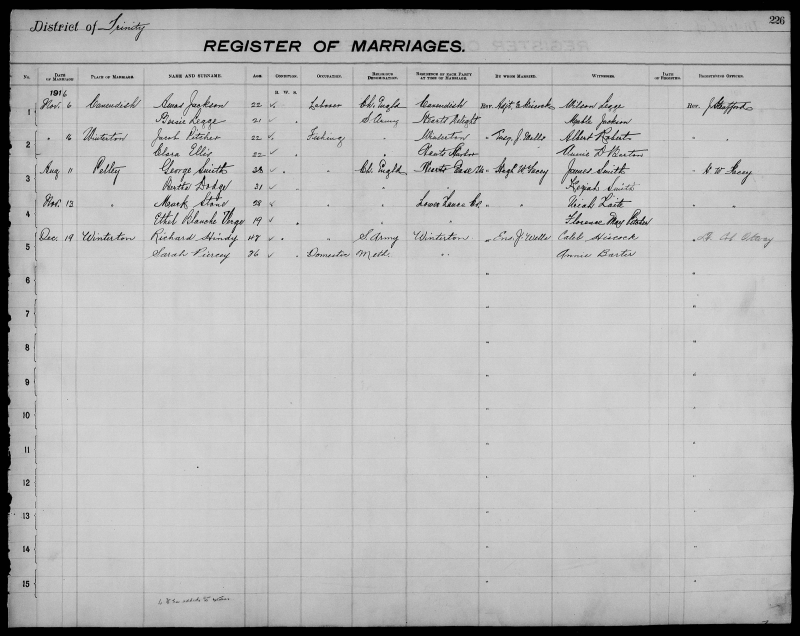 226
District of Trinity
REGISTER OF MARRIAGES.
No. DATE OF MARRIAGE. PLACE OF MARRIAGE. NAME AND SURNAME. AGE. CONDITION. OCCUPATION. RELIGIOUS DENOMINATION. RESIDENCE OF EACH PARTY AT TIME OF MARRIAGE. BY WHOM MARRIED. WITNESSES. DATE OF REGISTRY. REGISTERING OFFICER.
1916 B. W. S.
1 Nov. 6 Cavendish Amos Jackson 22 Laborer Ch. Engld Cavendish Rev. Adjt. Wilson Legge Rev. J. Stretford
Bessie Legge 21 " S. Army Hearts Delight Mable Jackson
2 " 16 Winterton Jacob Pitcher 22 Fishing " Winterton " Ensg. J. Wells Albert Roberts
Clara Ellis 22 " Hants Harbor Annie D. Barton
3 Aug 11 Pelley George Smith 38 " Ch. Engld Hearts Ease " Hugh W. Facey James Smith H W Facey
Bertha Dodge 31 " " " Keziah Smith
4 Nov. 13 " Mark Stone 28 " " "
Ethel Blanche Verge 19 " " " Florence Mary
5 Dec. 19 Winterton Richard Hindy 47 " S. Army Winterton " Ens. J. Wells Caleb Hiscock
Sarah Piercey 36 Domestic Meth. " Annie Barter
6 " "
7 " "
8 " "
9 " "
10 " "
11 " "
12 " "
13 " "
14 " "
15 " "